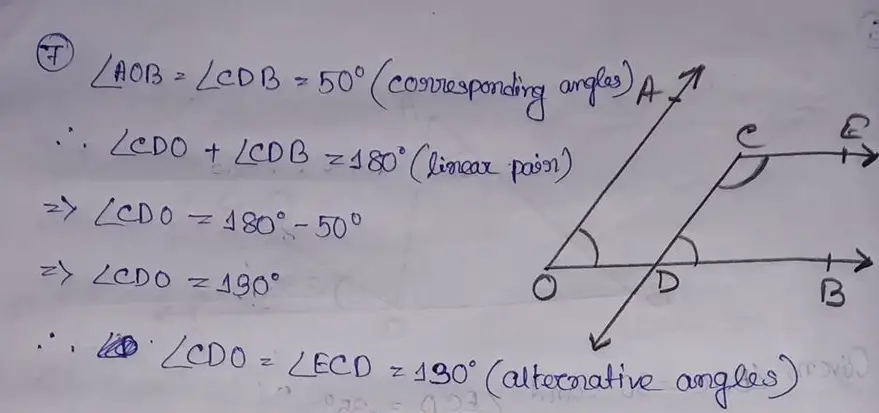 7
∠AOB = ∠CDB = 50° (corresponding angles)
∴ ∠CDO + ∠CDB = 180° (linear pair)
=> ∠CDO = 180° - 50°
=> ∠CDO = 130°
∴ ∠CDO = ∠ECD = 130° (alternative angles)
A
C
E
O
D
B